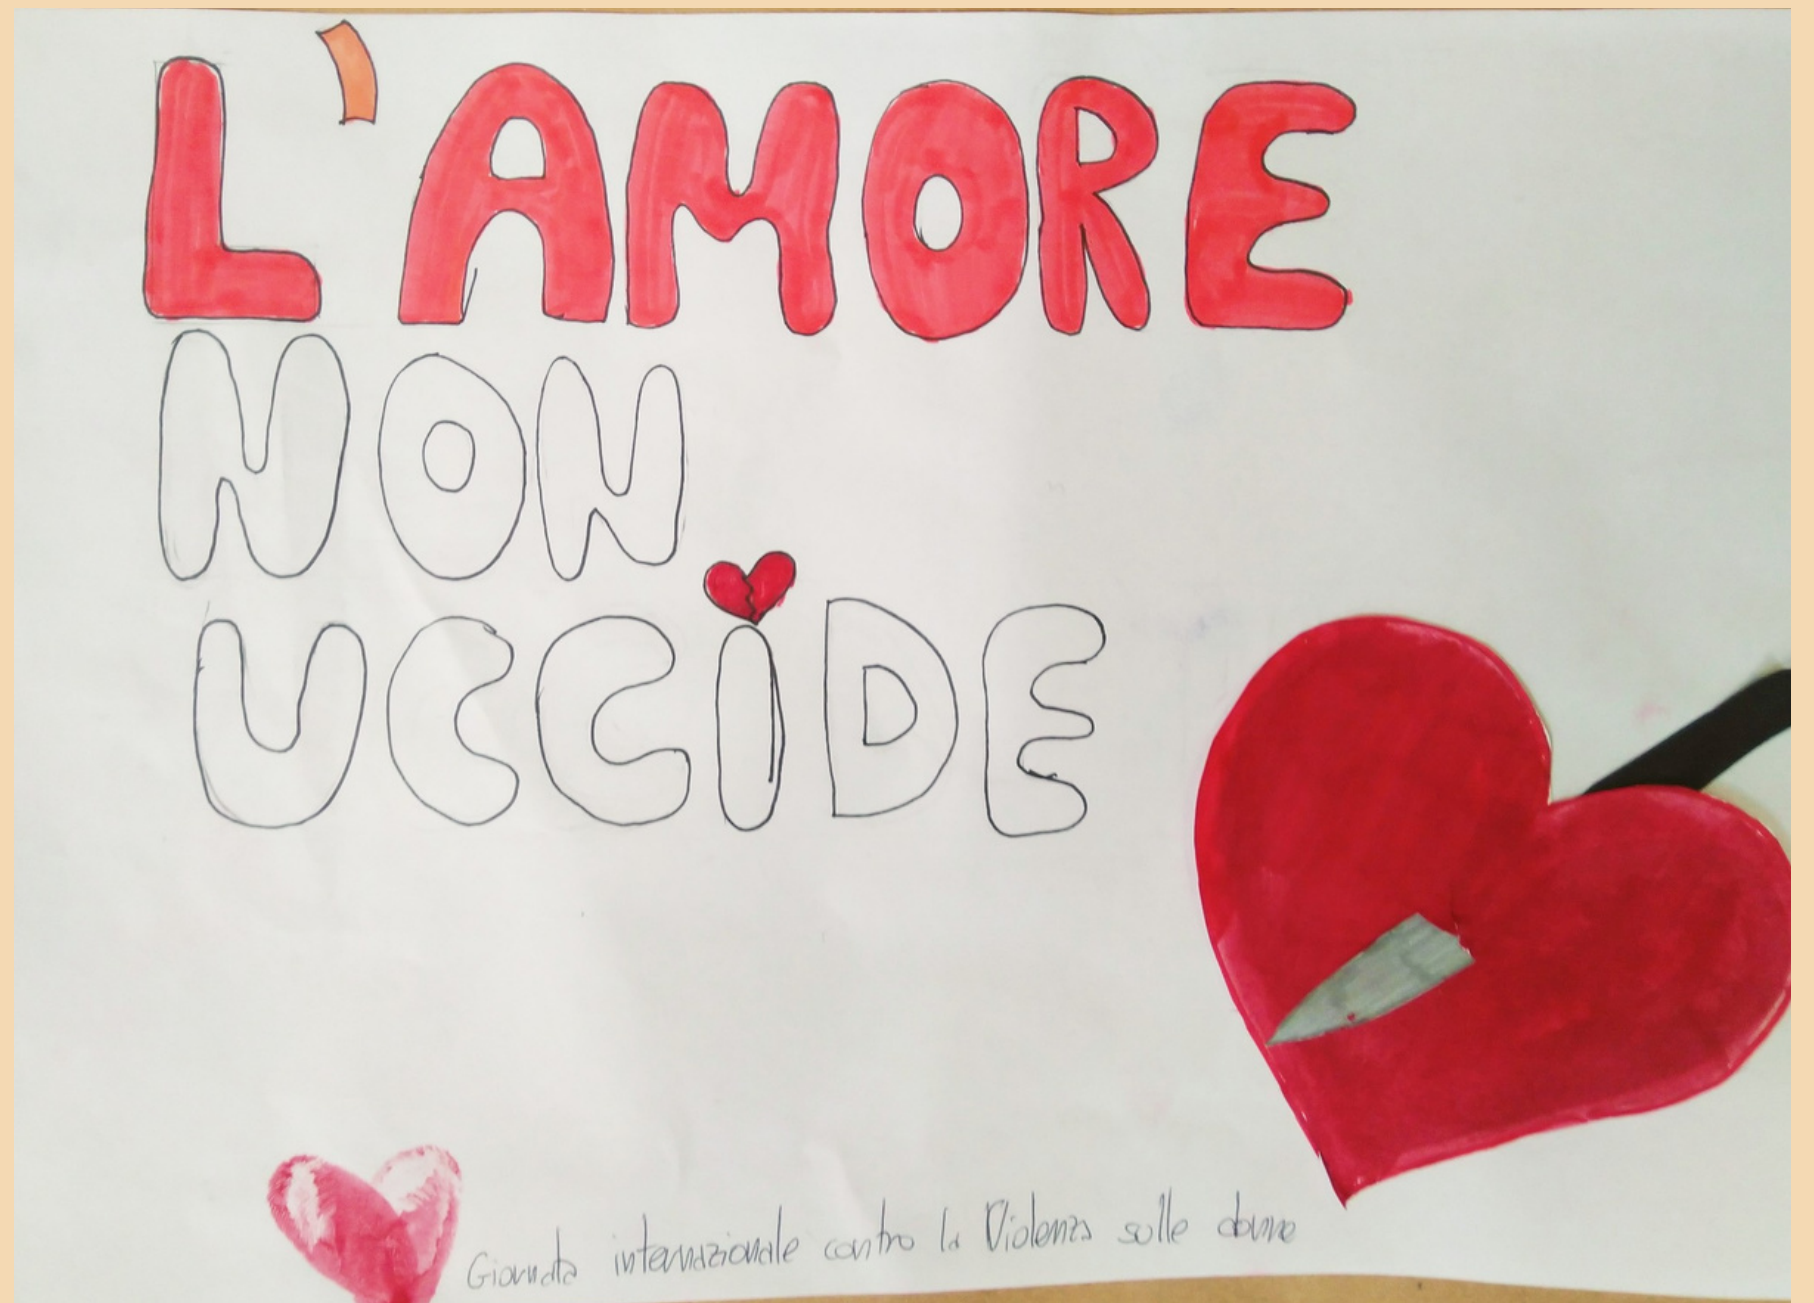 L'AMORE
NON
UCCIDE
Giornata internazionale contro la Violenza sulle donne